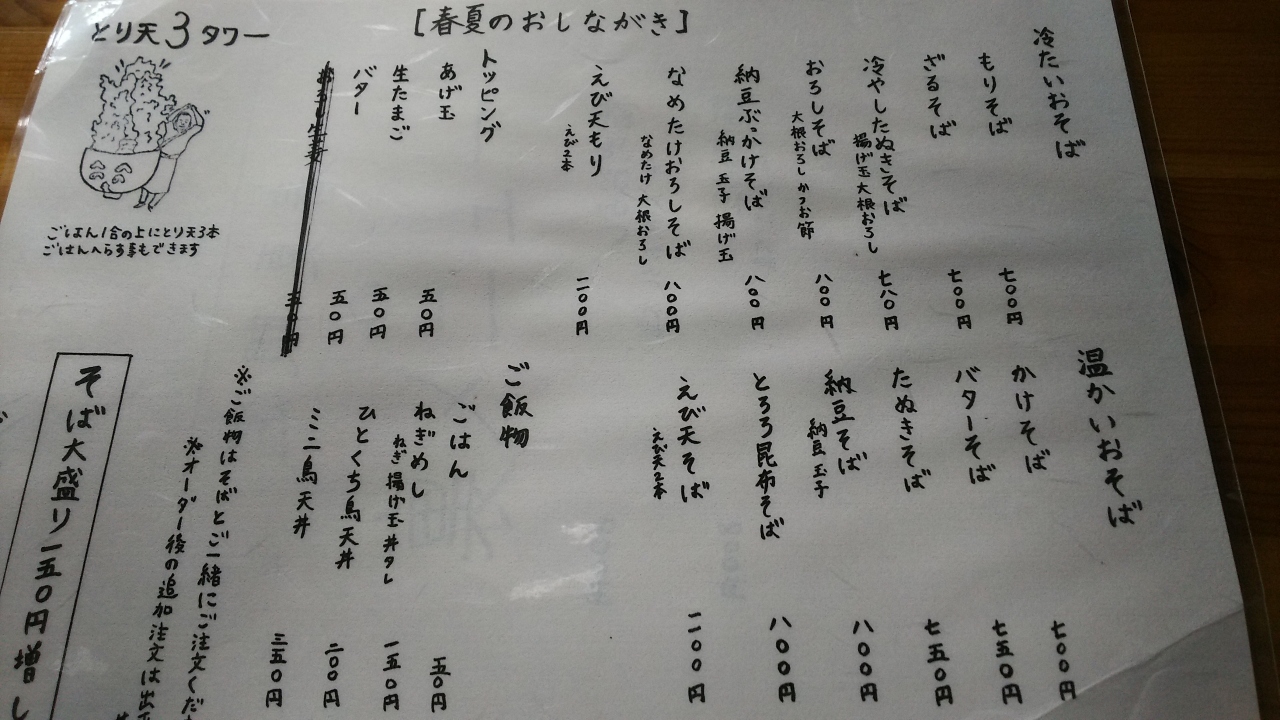 [春夏のおしながき]
冷たいおそば
もりそば 七〇〇円
ざるそば 七〇〇円
冷やしたぬきそば 七八〇円
揚げ玉 大根おろし
おろしそば 八〇〇円
大根おろし かつお節
納豆ぶっかけそば 八〇〇円
納豆 玉子 揚げ玉
なめたけおろしそば 八〇〇円
なめたけ 大根おろし
えび天もり 一一〇〇円
えび2本
トッピング
あげ玉 五〇円
生たまご 五〇円
バター 五〇円
温かいおそば
かけそば 七〇〇円
バターそば 七五〇円
たぬきそば 七五〇円
納豆そば 八〇〇円
納豆 玉子
とろろ昆布そば 八〇〇円
えび天そば 一一〇〇円
えび天2本
ご飯物
ごはん 五〇円
ねぎめし 一五〇円
ねぎ 揚げ玉 丼タレ
ひとくち鳥天丼 二〇〇円
ミニ鳥天丼 三五〇円
※ご飯物はそばとご一緒にご注文くだ
※オーダー後の追加注文は出
とり天3タワー
ごはん1合の上にとり天3本
ごはんへらす事もできます
そば大盛り一五〇円増し